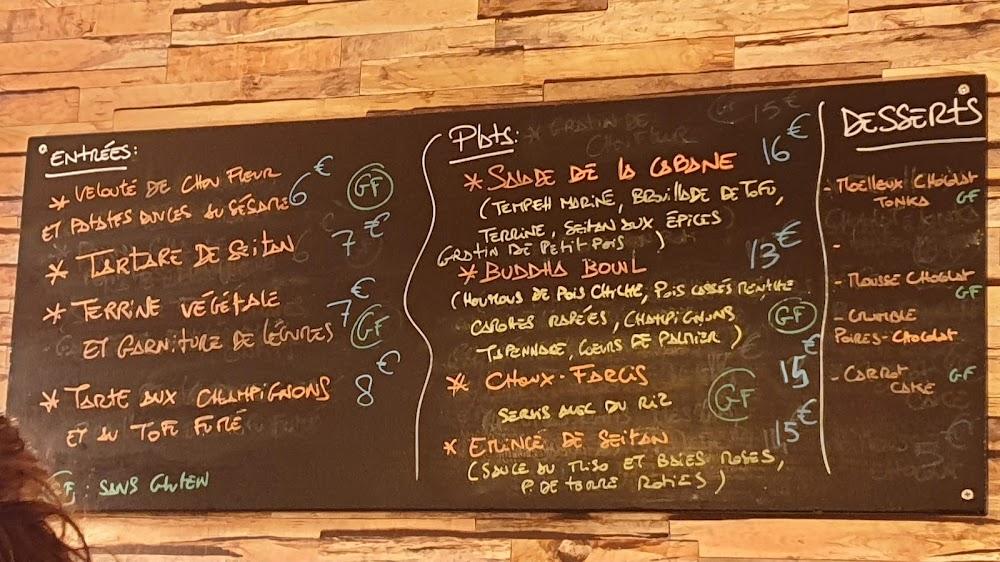 ENTRÉES:
* VELOUTÉ DE CHOU FLEUR
ET PATATES DOUCES AU SÉSAME 6 € GF
* TARTARE DE SEITAN 7 €
* TERRINE VÉGÉTALE 7 €
ET GARNITURE DE LÉGUMES GF
* TARTE AUX CHAMPIGNONS 8 €
ET AU TOFU FUMÉ
GF : SANS GLUTEN
Plats:
* GRATIN DE CHOU FLEUR GF 15 €
* SALADE DE LA CABANE 16 €
(TEMPEH MARINE, BROUILLADE DE TOFU,
TERRINE, SEITAN AUX ÉPICES
GRATIN DE PETIT POIS )
* BUDDHA BOWL 13 €
(HOUMOUS DE POIS CHICHE, POIS CASSÉS MENTHE
CAROTTES RAPÉES, CHAMPIGNONS GF
TAPENNADE, COEURS DE PALMIER )
* CHOUX-FARCIS 15 €
SERVIS AVEC DU RIZ GF
* EMINCÉ DE SEITAN 15 €
(SAUCE AU MISO ET BAIES ROSES,
P. DE TERRE ROTIES )
DESSERTS
- MOELLEUX CHOCOLAT
TONKA GF
-
- MOUSSE CHOCOLAT
GF
- CRUMBLE
POIRES-CHOCOLAT
- CARROT GF
CAKE